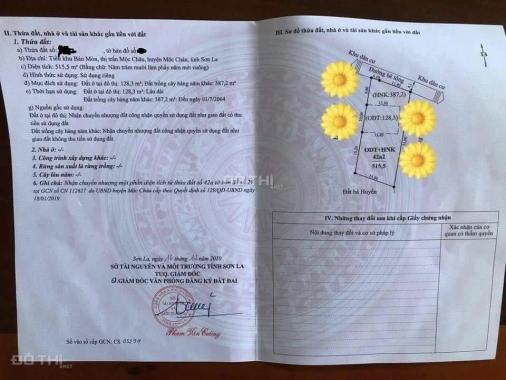 II. Thửa đất, nhà ở và tài sản khác gắn liền với đất
1. Thửa đất:
a) Thửa đất số: , tờ bản đồ số:
b) Địa chỉ: Tiểu khu Bản Mòn, thị trấn Mộc Châu, huyện Mộc Châu, tỉnh Sơn La
c) Diện tích: 515,5 m² (Bằng chữ: Năm trăm mười lăm phẩy năm mét vuông)
d) Hình thức sử dụng: Sử dụng riêng
đ) Mục đích sử dụng: Đất ở tại đô thị: 128,3 m²; Đất trồng cây hàng năm khác: 387,2 m²
e) Thời hạn sử dụng: Đất ở tại đô thị: 128,3 m²: Lâu dài
Đất trồng cây hàng năm khác: 387,2 m²: Đến ngày 01/7/2064
g) Nguồn gốc sử dụng:
Đất ở tại đô thị: Nhận chuyển nhượng đất công nhận quyền sử dụng đất như giao đất có thu
tiền sử dụng đất
Đất trồng cây hàng năm khác: Nhận chuyển nhượng đất công nhận quyền sử dụng đất như
giao đất không thu tiền sử dụng đất.
2. Nhà ở: -/-
3. Công trình xây dựng khác: -/-
4. Rừng sản xuất là rừng trồng: -/-
5. Cây lâu năm: -/-
6. Ghi chú: Nhận chuyển nhượng một phần diện tích từ thửa đất số 42a tờ bản đồ
tại GCN số CN 112627 do UBND huyện Mộc Châu cấp theo Quyết định số 129/QĐ-UBND ngày
18/01/2019
Sơn La, ngày tháng năm 2019
SỞ TÀI NGUYÊN VÀ MÔI TRƯỜNG TỈNH SƠN LA
TUQ. GIÁM ĐỐC
GIÁM ĐỐC VĂN PHÒNG ĐĂNG KÝ ĐẤT ĐAI
Phạm Văn Cường
Số vào sổ cấp GCN: CS
III. Sơ đồ thửa đất, nhà ở và tài sản khác gắn liền với đất
Khu dân cư
Đường bê tông
Khu dân cư
(HNK:387,2)
(ODT:128,3)
ODT+HNK
42a2
515,5
Đất bà Huyền
IV. Những thay đổi sau khi cấp Giấy chứng nhận
Nội dung thay đổi và cơ sở pháp lý
Xác nhận của cơ
quan có thẩm quyền
ĐÔ THỊ
ĐÔ THỊ
.NET